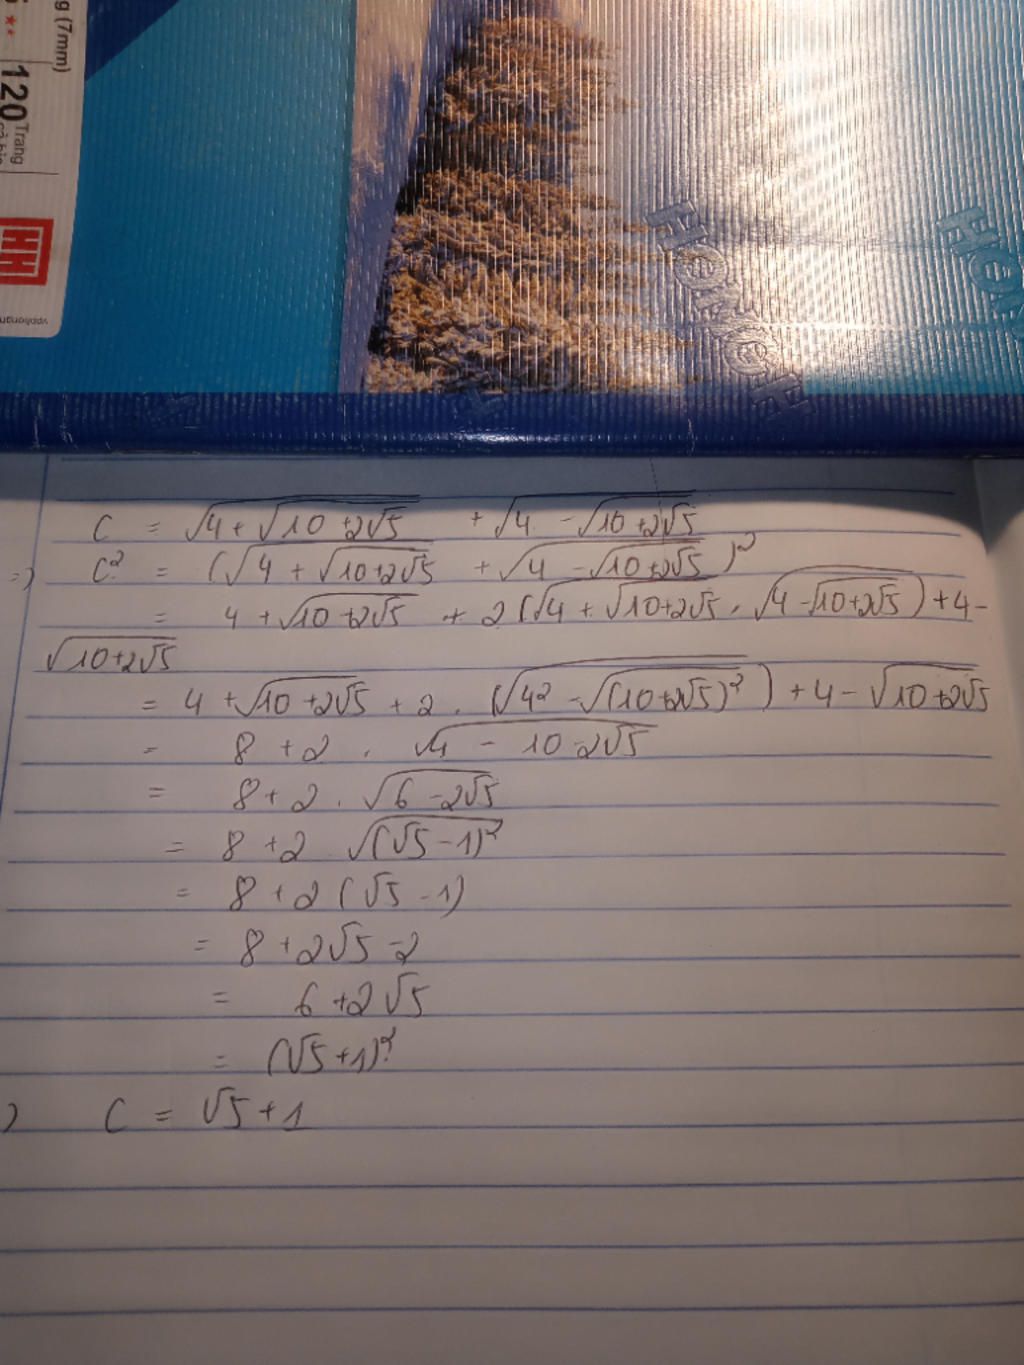 g (7mm)
120 Trang
HH
HOMECH
HOM
C = √4 + √10 + 2√5 + √4 - √10 + 2√5
=) C² = (√4 + √10+2√5 + √4 - √10+2√5)²
= 4 + √10 + 2√5 + 2 (√4 + √10+2√5 . √4 - √10+2√5) + 4 -
√10+2√5
= 4 + √10 + 2√5 + 2 . (√4² - √(10+2√5)²) + 4 - √10+2√5
= 8 + 2 . √4 - 10 - 2√5
= 8 + 2 . √6 - 2√5
= 8 + 2 √(√5 - 1)²
= 8 + 2 (√5 - 1)
= 8 + 2√5 - 2
= 6 + 2√5
= (√5 + 1)²
) C = √5 + 1